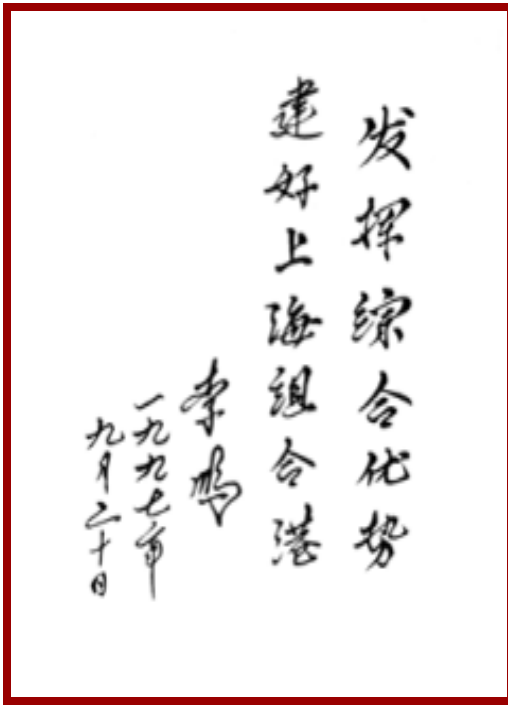 发挥综合优势
建好上海组合港
李鹏
一九九七年
九月二十日